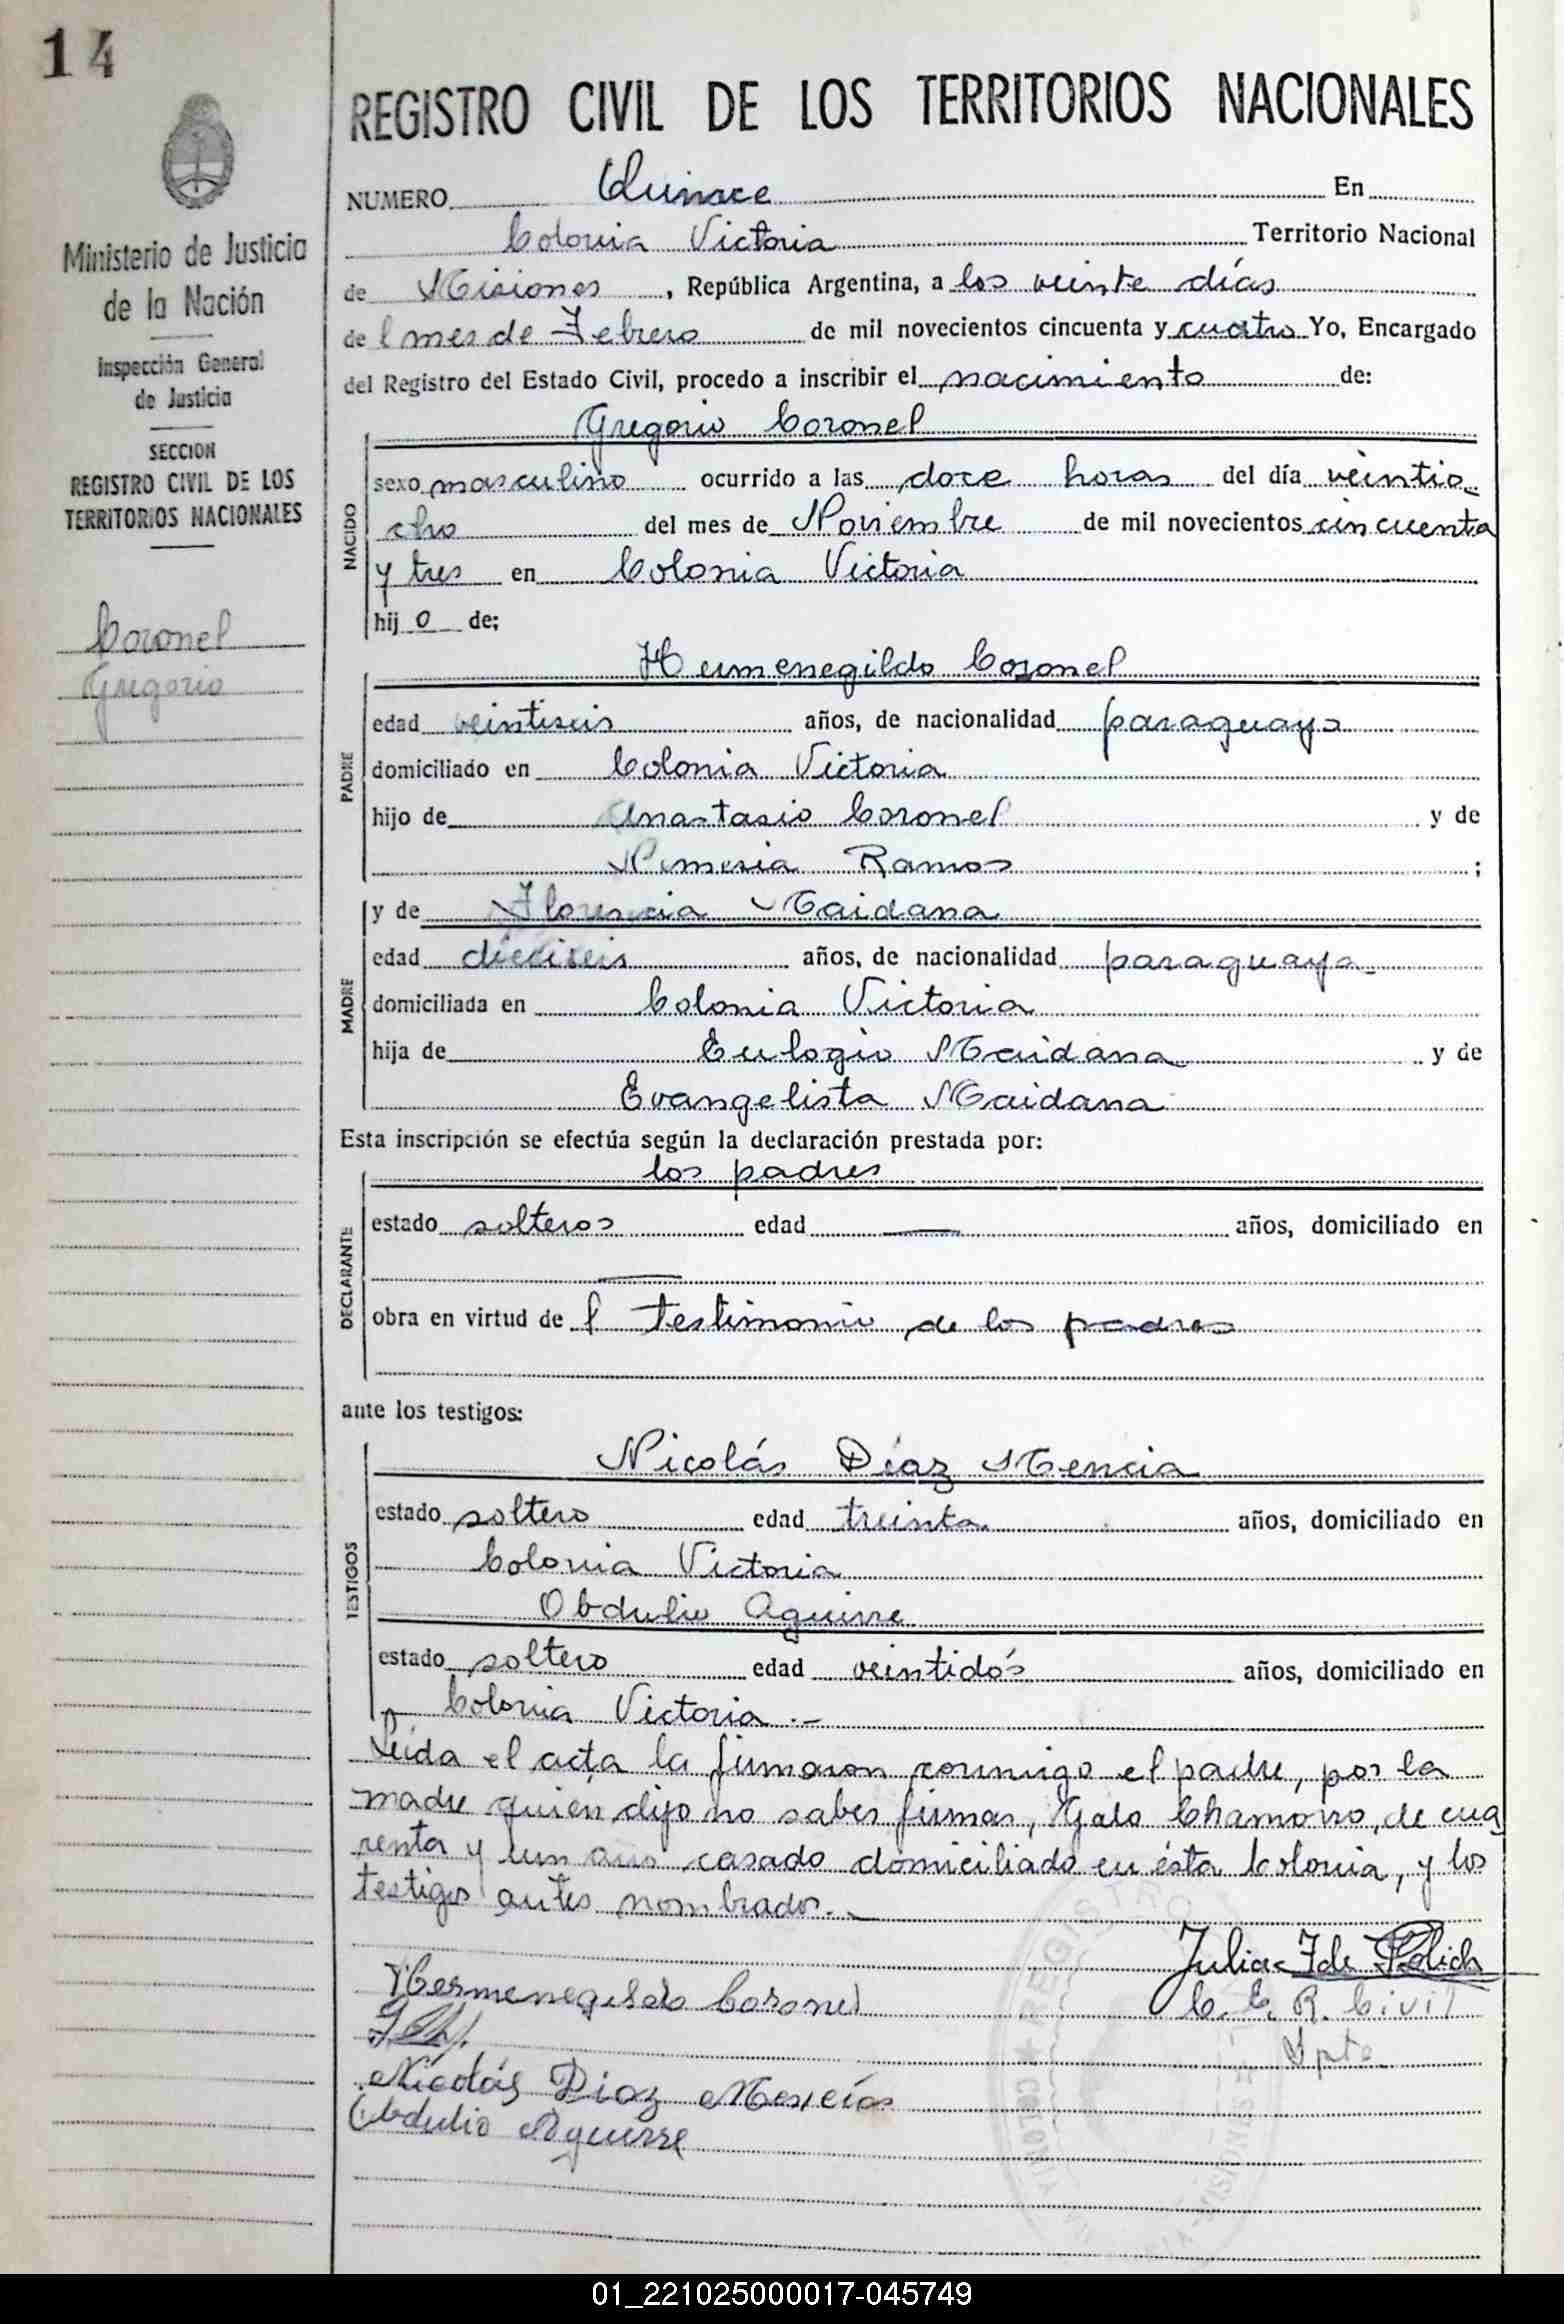 14
REGISTRO CIVIL DE LOS TERRITORIOS NACIONALES
Ministerio de Justicia
de la Nación
Inspección General
de Justicia
SECCION
REGISTRO CIVIL DE LOS
TERRITORIOS NACIONALES
Coronel
Gregorio
NUMERO Quince En
Colonia Victoria Territorio Nacional
de Misiones, República Argentina, a los veinte días
del mes de Febrero de mil novecientos cincuenta y cuatro Yo, Encargado
del Registro del Estado Civil, procedo a inscribir el nacimiento de:
NACIDO
Gregorio Coronel
sexo masculino ocurrido a las doce horas del día veintio
cho del mes de Noviembre de mil novecientos cincuenta
y tres en Colonia Victoria
hij o de;
PADRE
Hermenegildo Coronel
edad veintiseis años, de nacionalidad paraguayo
domiciliado en Colonia Victoria
hijo de Anastasio Coronel y de
Nimesia Ramos ;
MADRE
y de Florencia Maidana
edad dieciseis años, de nacionalidad paraguaya
domiciliada en Colonia Victoria
hija de Eulogio Maidana y de
Evangelista Maidana
Esta inscripción se efectúa según la declaración prestada por:
DECLARANTE
los padres
estado solteros edad — años, domiciliado en
—
obra en virtud del testimonio de los padres
ante los testigos:
TESTIGOS
Nicolás Díaz Mencia
estado soltero edad treinta años, domiciliado en
Colonia Victoria
Obdulio Aguirre
estado soltero edad veintidós años, domiciliado en
Colonia Victoria.-
Leída el acta la firmaron conmigo el padre, por la
madre quien dijo no saber firmar, Galo Chamorro, de cua
renta y un año casado domiciliado en ésta Colonia, y los
testigos antes nombrados.-
Julia F de
Hermenegildo Coronel
C. E. R. Civil
Spte
Nicolás Diaz Mencias
Obdulio Aguirre
REGISTRO
MISIONES
01_221025000017-045749